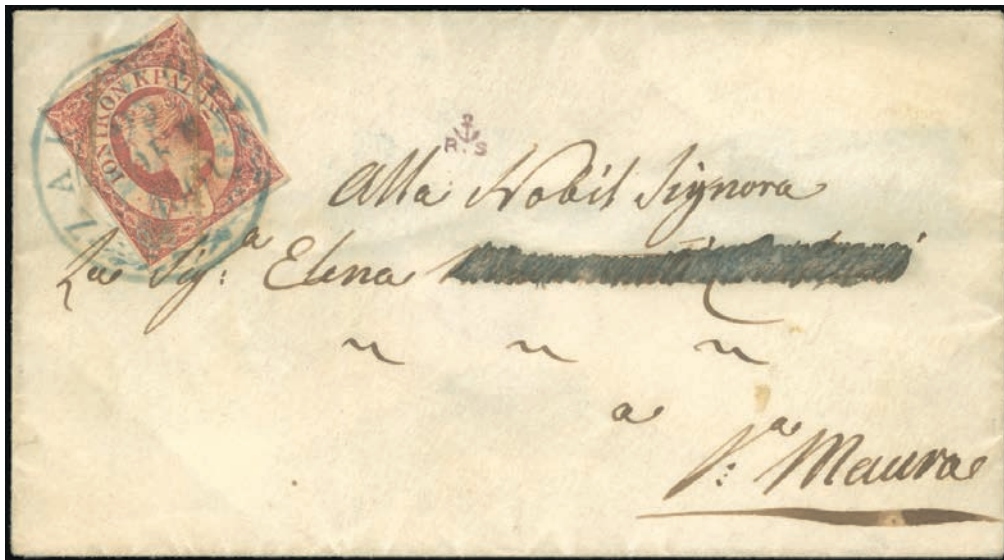 ΙΟΝΙΚΟΝ ΚΡΑΤΟΣ
R. S
Alla Nobil Signora
La Sig:ª Elena
a
S:ª Maura